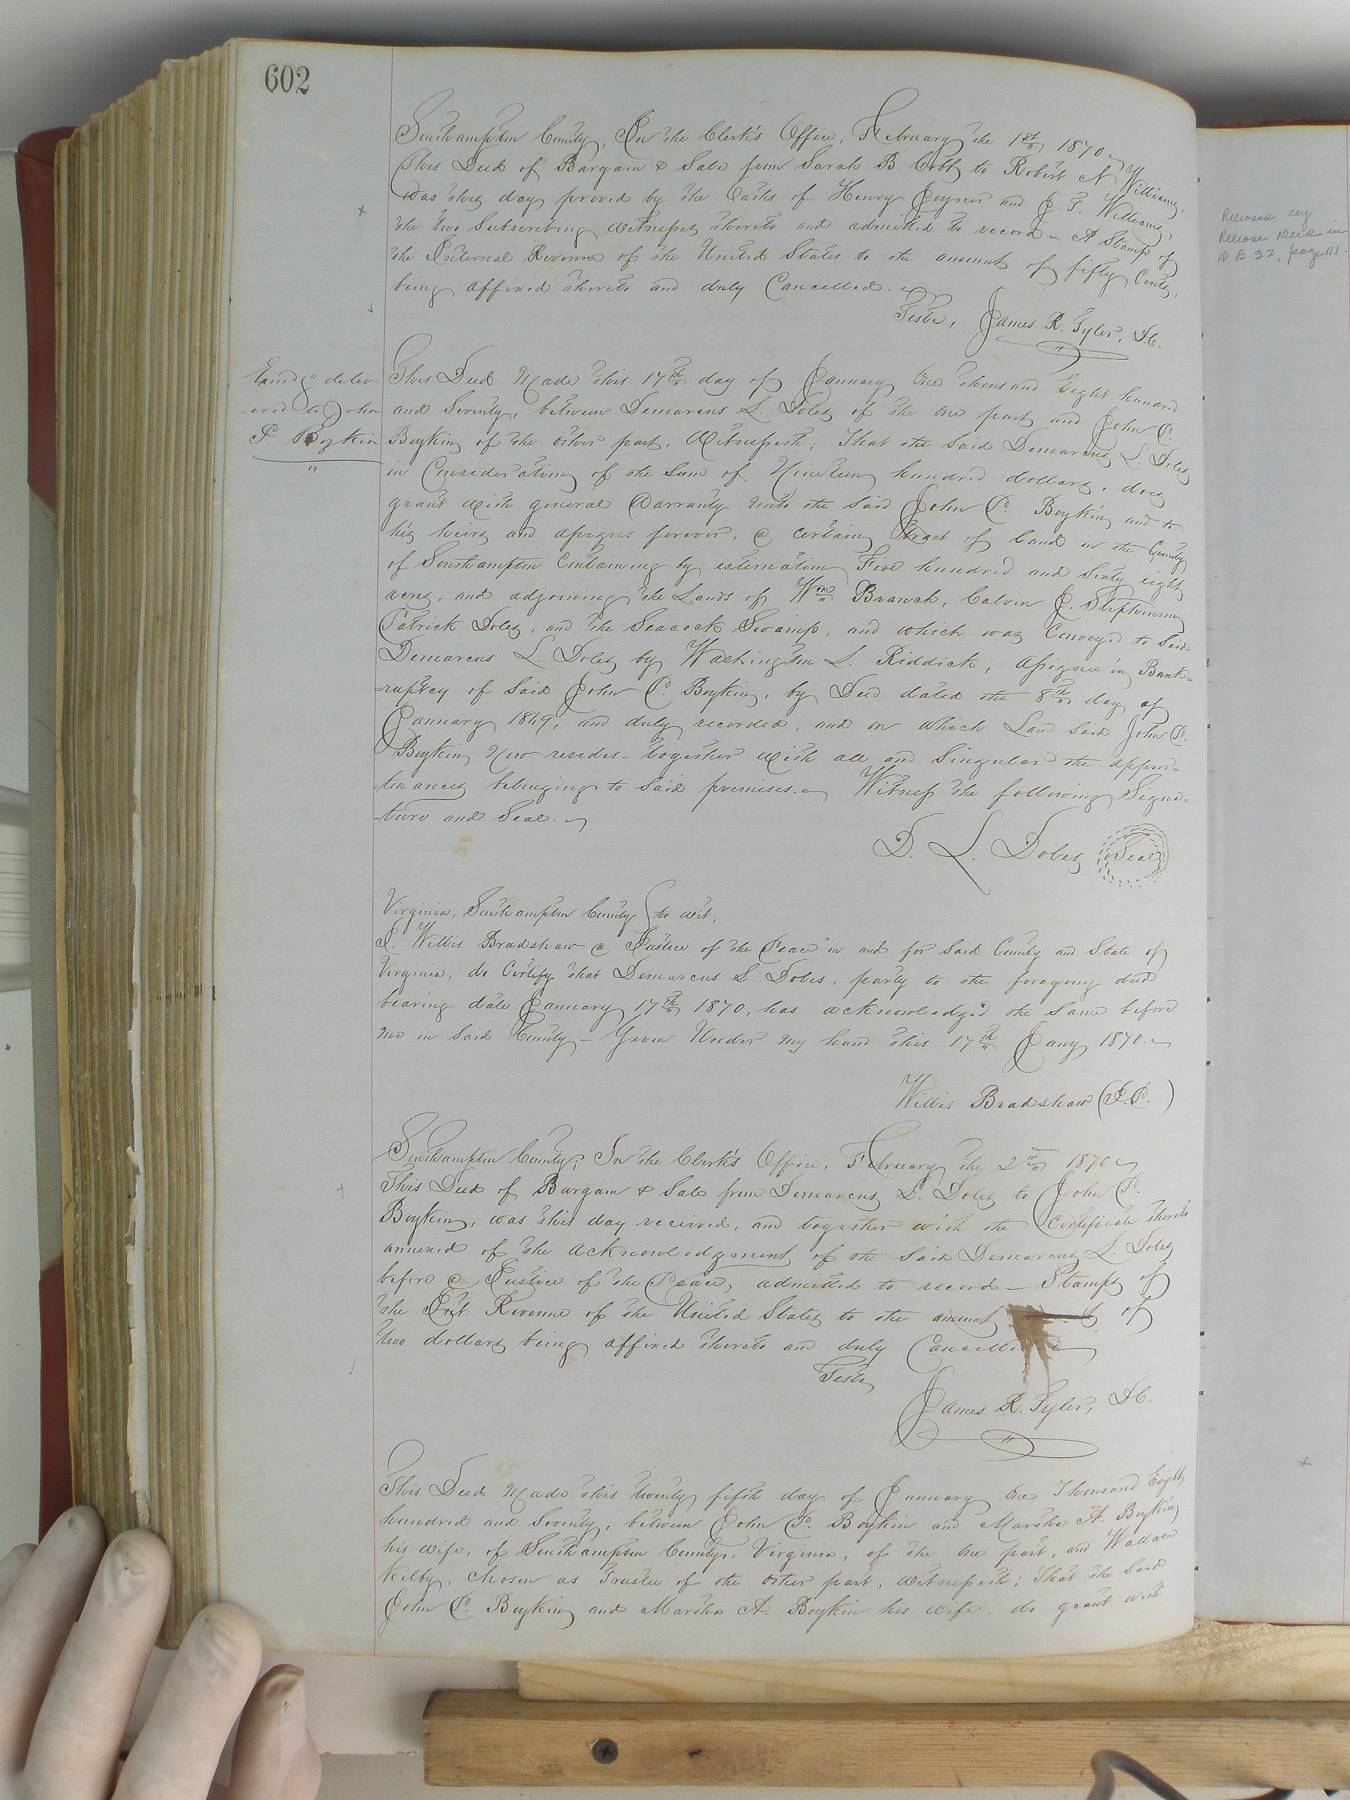 602
Southampton County, In the Clerk's Office, February the 1st 1870
This Deed of Bargain & Sale from Sarah B. Cobb to Robert N Williams,
was this day proved by the oaths of Henry Joyner and J. T. Williams,
the two Subscribing witnesses thereto and admitted to record - A Stamp of
the Internal Revenue of the United States to the amount of fifty Cents,
being affixed thereto and duly Cancelled.
Teste, James R. Tyler, D.C.
Exmd & deliv-
ered to John
P. Boykin
This Deed Made this 17th day of January One thousand Eight hundred
and Seventy, between Demarcus L. Doles of the one part and John P.
Boykin of the other part, Witnesseth; That the Said Demarcus L. Doles
in Consideration of the Sum of Nineteen hundred dollars, does
grant with general Warranty unto the Said John P. Boykin and to
his heirs and assigns forever, a certain Tract of Land in the County
of Southampton Containing by estimation Five hundred and Sixty eight
acres, and adjoining the Lands of Wm Branch, Calvin J. Stephenson
Patrick Doles, and the Seacock Swamp, and which was Conveyed to Said
Demarcus L. Doles by Washington L. Riddick, Assignee in Bank-
-ruptcy of Said John P. Boykin, by Deed dated the 8th day of
January 1869, and duly recorded, and on which Lan said John P.
Boykin now resides - together with all and Singular the appur-
-tenances belonging to Said premises. Witness the following Signa-
-ture and Seal.
D. L. Doles Seal
Virginia, Southampton County to wit;
I, Willis Bradshaw a Justice of the Peace in and for Said County and State of
Virginia, do Certify that Demarcus L. Doles, party to the foregoing deed
bearing date January 17th 1870, has acknowledged the Same before
me in Said County - Given Under my hand this 17th Jany 1870
Willis Bradshaw (J.P.)
Southampton County; In the Clerk's Office, February the 2nd 1870
This Deed of Bargain & Sale from Demarcus L. Doles to John P.
Boykin, was this day received, and together with the Certificate thereto
annexed of the acknowledgment of the Said Demarcus L. Doles
before a Justice of the Peace, admitted to record - Stamps of
the Int. Revenue of the United States to the amount of
two dollars being affixed thereto and duly Cancelled
Teste
James R. Tyler, D.C.
This Deed Made this twenty fifth day of January One Thousand Eight
hundred and Seventy, between John P. Boykin and Martha A. Boykin
his wife, of Southampton County, Virginia, of the one part, and Wallace
Kilby, chosen as Trustee of the other part, witnesseth; That the Said
John P. Boykin and Martha A. Boykin his wife, do grant with
Released by
Release Deed in
D.B. 32, page 111.